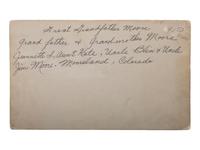 Great Grandfather Moore
Grand father & Grandmother Moore
Jennette L, Aunt Kate, Uncle Blen & Uncle
Jim Moore. Moreland, Colorado